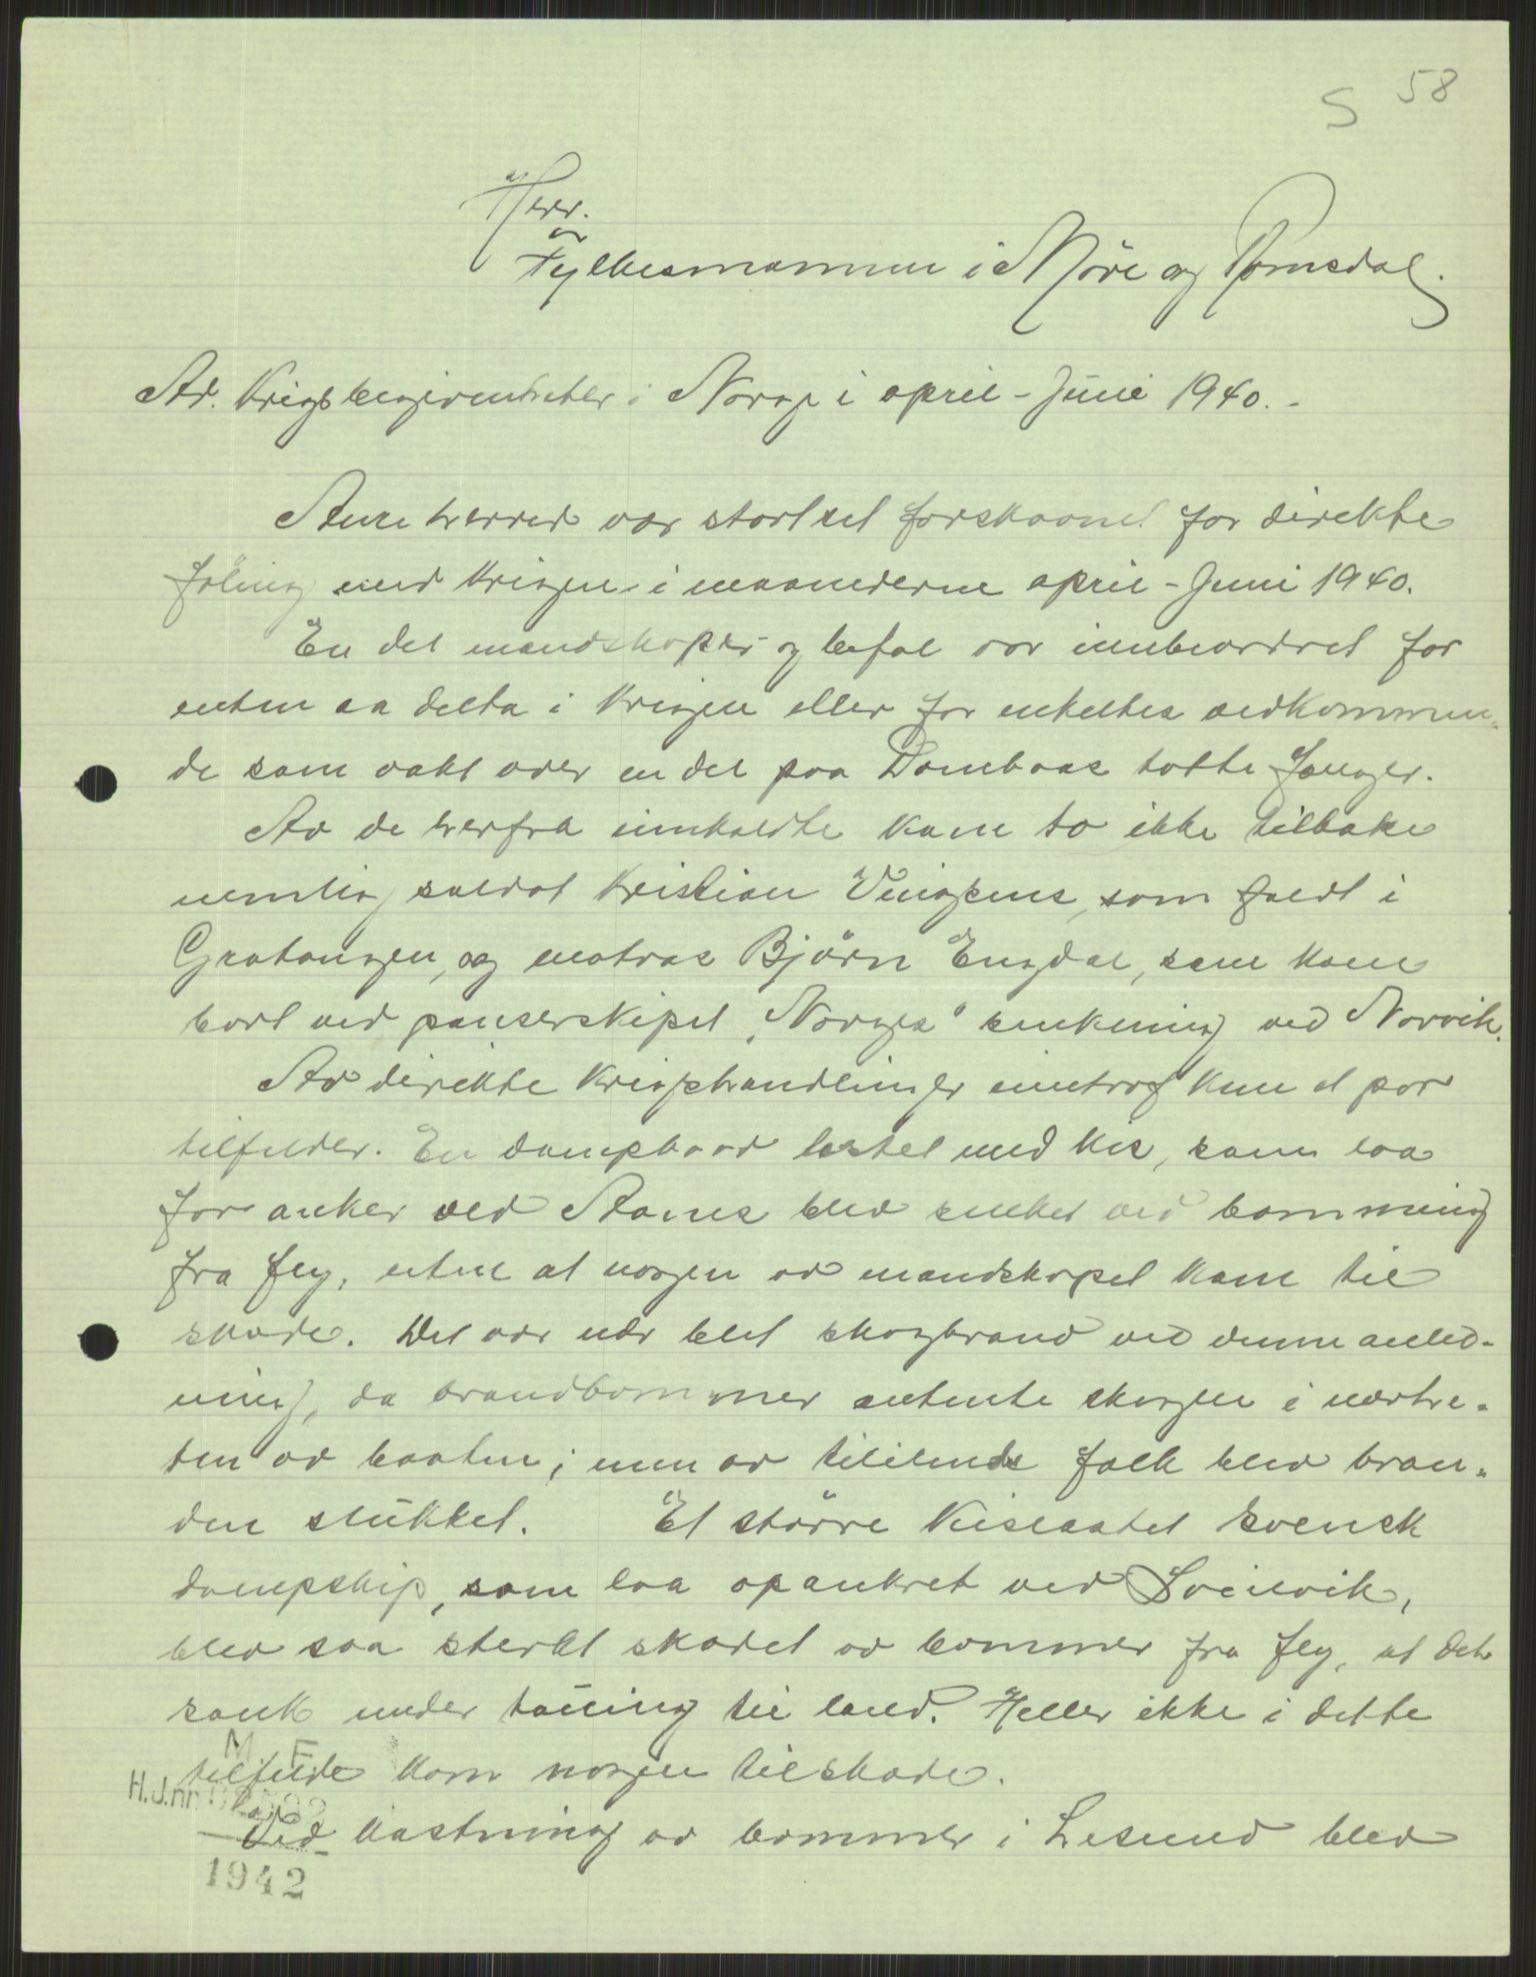 S 58
Herr.
Fylkesmannen i Möre og Romsdal.
Ad. Krigsbegivenheter i Norge i april - Juni 1940. -
Aure herred var stort set forskaanet for direkte
föling med krigen i maanederne april - Juni 1940.
En del mandskaper og befal var innbeordret for
enten aa delta i krigen eller for enkeltes vedkommen-
de som vakt over en del paa Dombaas tatte fanger.
Av de herfra innkaldte kam to ikke tilbake
nemlig soldat Kristian Vingsens, som faldt i
Gratangen, og matros Björn Engdal, som kam
bort ved panserskipet "Norges" senkning ved Narvik.
Av direkte krigshandlinger inntraf kun et par
tilfelder. En dampbaad lastet med kis, som laa
for anker ved Stamnes blev senket ved bomming
fra fly, uten at nogen av mandskapet kam til
skade. Det var nær blit skogbrand ved denne anled-
ning, da brandbommer antente skogen i nærhe-
ten av baaten; men av tililende folk blev bran-
den slukket. Et större kislastet svensk
dampskip, som laa opankret ved Livsvik,
blev saa sterkt skadet av bommer fra fly, at det
sank under tauing til land. Heller ikke i dette
tilfelde kom nogen til skade.
M F
H.J.nr
Ved kastning av bommer i Lesund blev
1942